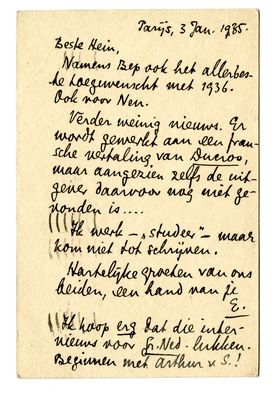 Parijs, 3 Jan. 1935.
Beste Hein,
Namens Bep ook het allerbes-
te toegewenscht met 1936.
Ook voor Nen.
Verder weinig nieuws. Er
wordt gewerkt aan een fran-
sche vertaling van Ducroo,
maar aangezien zelfs de uit-
gever daarvoor nog niet ge-
vonden is....
Ik werk – „studeer” – maar
kom niet tot schrijven.
Hartelijke groeten van ons
beiden, een hand van je
E.
Ik hoop erg dat die inter-
nieuws voor Gr. Ned. lukken.
Beginnen met Arthur v. S.!